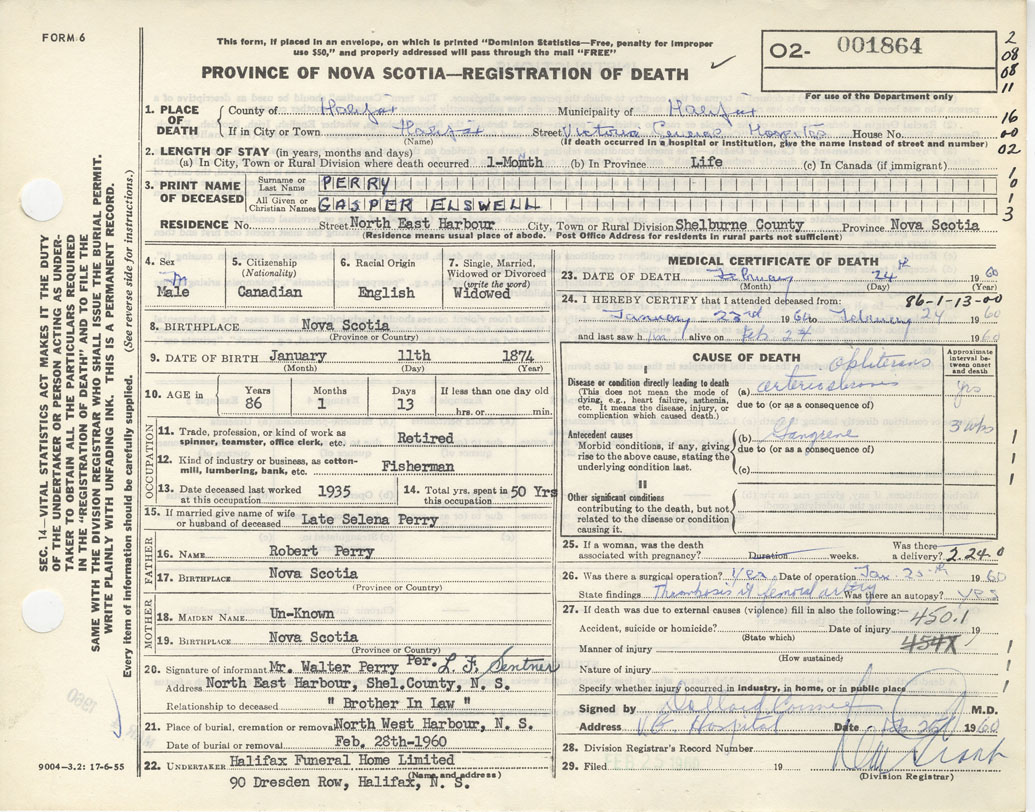 FORM 6
This form, if placed in an envelope, on which is printed "Dominion Statistics—Free, penalty for improper
use $50," and properly addressed will pass through the mail "FREE"
PROVINCE OF NOVA SCOTIA—REGISTRATION OF DEATH ✓
O2- 001864
For use of the Department only
2
08
08
11
16
00
02
1
0
1
3
1. PLACE OF DEATH
County of Halifax Municipality of Halifax
If in City or Town Halifax Street Victoria General Hospital House No.
(Name) (If death occurred in a hospital or institution, give the name instead of street and number)
2. LENGTH OF STAY (in years, months and days)
(a) In City, Town or Rural Division where death occurred 1-Month (b) In Province Life (c) In Canada (if immigrant)
3. PRINT NAME OF DECEASED
Surname or Last Name PERRY
All Given or Christian Names GASPER ELSWELL
RESIDENCE No. Street North East Harbour City, Town or Rural Division Shelburne County Province Nova Scotia
(Residence means usual place of abode. Post Office Address for residents in rural parts not sufficient)
4. Sex M Male
5. Citizenship (Nationality) Canadian
6. Racial Origin English
7. Single, Married, Widowed or Divorced (write the word) Widowed
8. BIRTHPLACE Nova Scotia
(Province or Country)
9. DATE OF BIRTH January 11th 1874
(Month) (Day) (Year)
10. AGE in Years 86 Months 1 Days 13 If less than one day old hrs. or min.
OCCUPATION
11. Trade, profession or kind of work as spinner, teamster, office clerk, etc. Retired
12. Kind of industry or business, as cotton-mill, lumbering, bank, etc. Fisherman
13. Date deceased last worked at this occupation 1935
14. Total yrs. spent in this occupation 50 Yrs
15. If married give name of wife or husband of deceased Late Selena Perry
FATHER
16. NAME Robert Perry
17. BIRTHPLACE Nova Scotia
(Province or Country)
MOTHER
18. MAIDEN NAME Un-Known
19. BIRTHPLACE Nova Scotia
(Province or Country)
20. Signature of informant Mr. Walter Perry Per. L. F. Sentner
Address North East Harbour, Shel.County, N. S.
Relationship to deceased " Brother In Law "
21. Place of burial, cremation or removal North West Harbour, N. S.
Date of burial or removal Feb. 28th-1960
22. UNDERTAKER Halifax Funeral Home Limited
(Name and address)
90 Dresden Row, Halifax, N. S.
MEDICAL CERTIFICATE OF DEATH
23. DATE OF DEATH February 24th 1960
(Month) (Day) (Year)
86-1-13-00
24. I HEREBY CERTIFY that I attended deceased from:
January 23rd 1960 to February 24 1960
and last saw him alive on Feb 24 1960
CAUSE OF DEATH
Approximate interval between onset and death
I
Disease or condition directly leading to death
(This does not mean the mode of dying, e.g., heart failure, asthenia, etc. It means the disease, injury, or complication which caused death.)
(a) obliterans arteriosclerosis yrs
due to (or as a consequence of)
Antecedent causes
Morbid conditions, if any, giving rise to the above cause, stating the underlying condition last.
(b) Gangrene 3 wks
due to (or as a consequence of)
(c)
II
Other significant conditions
contributing to the death, but not related to the disease or condition causing it.
1
1
1
25. If a woman, was the death associated with pregnancy? Duration weeks. Was there a delivery? 2.24.0
26. Was there a surgical operation? yes Date of operation Jan. 25th 1960
State findings Thrombosis lt femoral artery Was there an autopsy? yes
27. If death was due to external causes (violence) fill in also the following:— 450.1
Accident, suicide or homicide? Date of injury 19
(State which) 454X
Manner of injury 1
(How sustained)
Nature of injury 1
Specify whether injury occurred in industry, in home, or in public place 1
Signed by M.D.
Address V G Hospital Date Feb 25 1960
28. Division Registrar's Record Number
29. Filed FEB 25 19 19
(Division Registrar)
SEC. 14—VITAL STATISTICS ACT MAKES IT THE DUTY
OF THE UNDERTAKER OR PERSON ACTING AS UNDER-
TAKER TO OBTAIN ALL THE PARTICULARS REQUIRED
IN THE "REGISTRATION OF DEATH" AND TO FILE THE
SAME WITH THE DIVISION REGISTRAR WHO SHALL ISSUE THE BURIAL PERMIT.
WRITE PLAINLY WITH UNFADING INK. THIS IS A PERMANENT RECORD.
Every item of information should be carefully supplied. (See reverse side for instructions.)
9004-3.2: 17-6-55